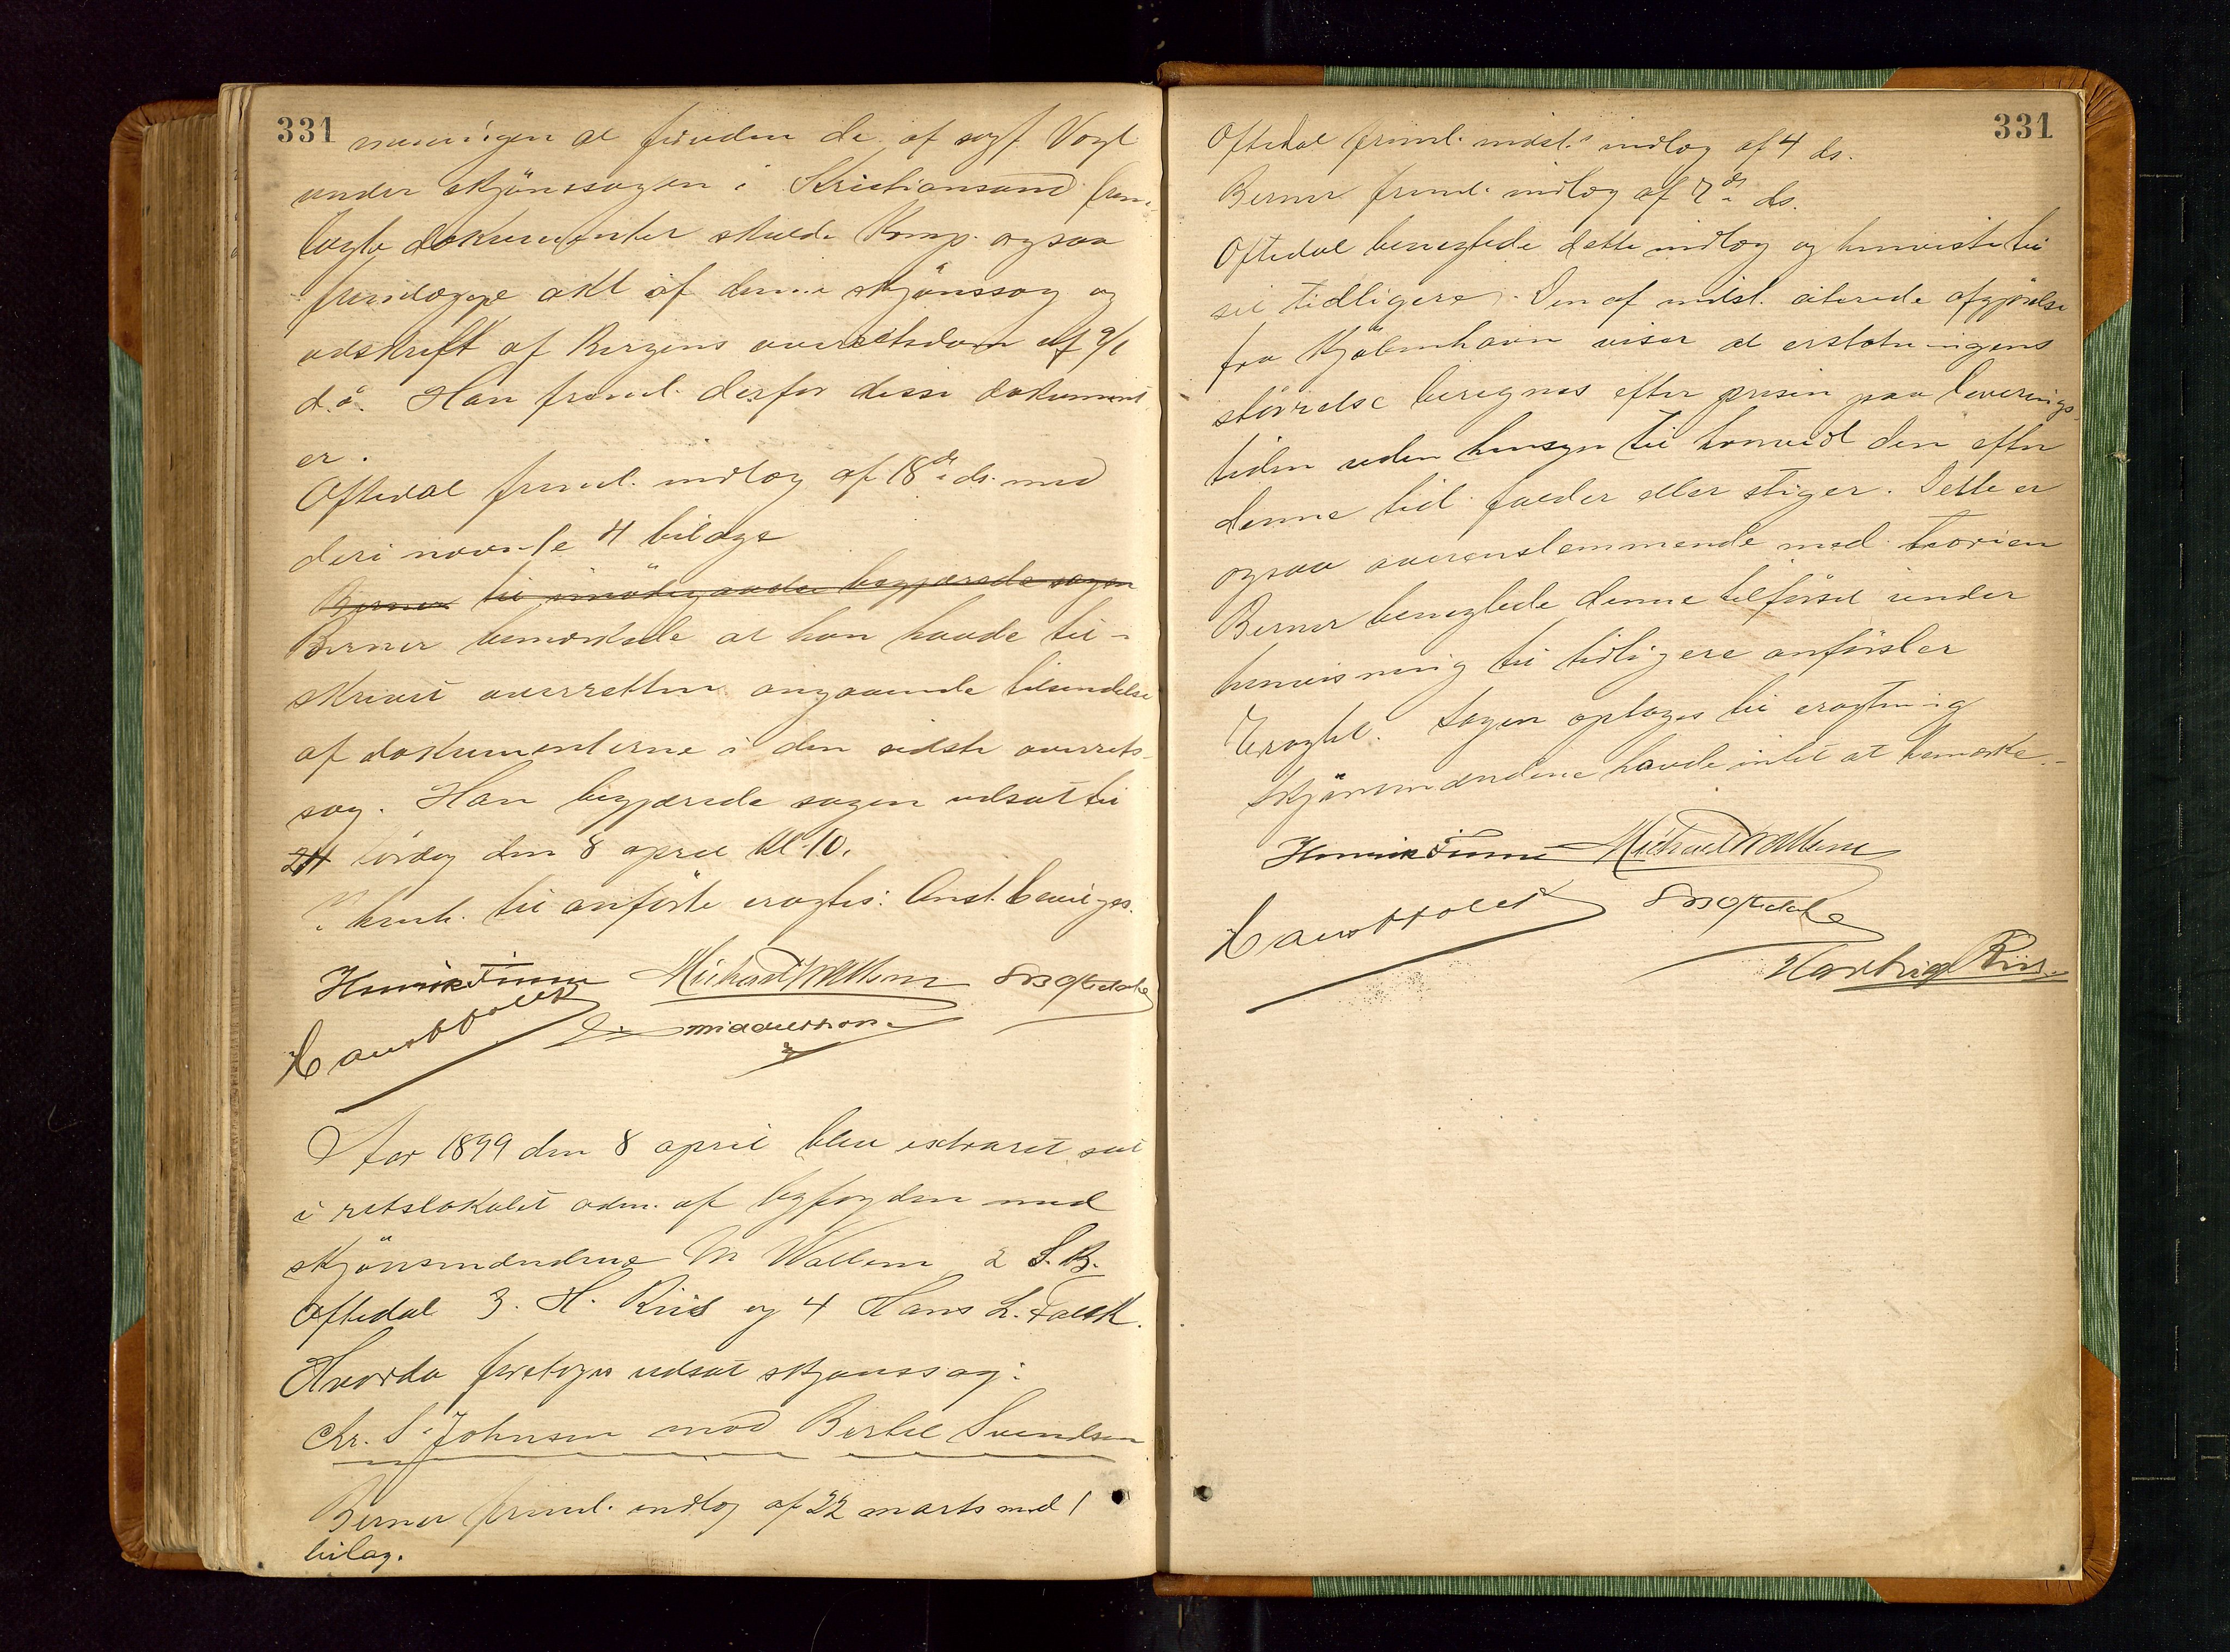 331
meningen at foruden de af sagf. Vogt
under skjönssagen i Kristiansund frem-
lagte dokumenter skulde Komp. ogsaa
fremlægge akt af denne skjönssag og
udskrift af Bergens overretsdom af 9/1
d.å. Han freml. derfor disse dokument
er.
Oftedal freml. indlæg af 18de ds. med
deri nævnte 4 bilage
Berner til imödegaaelse begjærede sagen
Berner bemærkede at han havde til-
skrevet overretten angaaende tilsendelse
af dokumenterne i den sidste overrets-
sag. Han begjærede sagen udsat til
lördag den 8 april kl. 10.
I henh. til anförte eragtes: Anst. bevilges.
Henrik Finne Michael Wallem S B Oftedal
Hans L Falck
Aar 1899 den 8 april blev extraret sat
i retslokalet adm. af byfogden med
skjönsmændene M Wallem 2 S. B.
Oftedal 3. H. Riis og 4 Hans L. Falck.
Hvorda foretoges udsat skjønssag:
Chr. S. Johnsen mod Bertel Svendsen
Berner freml. indlæg af 22 marts med 1
bilag.
331
Oftedal freml. indst.s indlæg af 4 ds.
Berner freml. indlæg af 7de ds.
Oftedal benegtede dette indlæg og henviste til
sit tidligere. Den af indst. citerede afgjörelse
fra Kjöbenhavn viser at erstatningens
störrelse beregnes efter prisen paa leverings-
tiden uden hensyn til hvorvidt den efter
denne tid falder eller stiger. Dette er
ogsaa overenstemmende med teorien
Berner benegtede denne tilförsel under
henvisning til tidligere anförsler
Eragtet. Sagen optages til eragtning
Skjönsmændene havde intet at bemærke.-
Henrik Finne Michael Wallem
Hans L Falck S B Oftedal
Hartvig Riis.